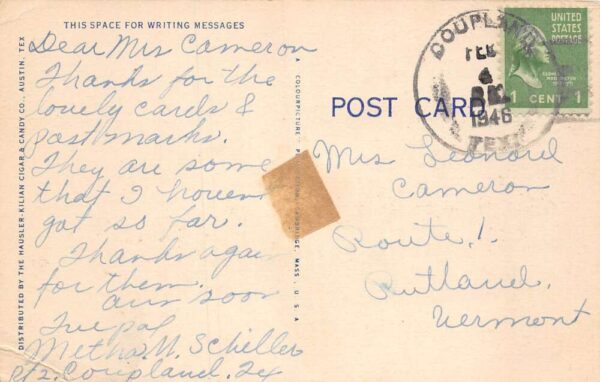 THIS SPACE FOR WRITING MESSAGES
Dear Mrs Cameron
Thanks for the
lovely cards &
post marks.
They are some
that I havent
got so far.
Thanks again
for them.
ans soon
Metha. M. Schiller
Rt2. Coupland. Tex
DISTRIBUTED BY THE HAUSLER-KILIAN CIGAR & CANDY CO., AUSTIN, TEX
A COLOURPICTURE CAMBRIDGE, MASS., U. S. A
POST CARD
COUPLAND
FEB
4
1946
TEX
UNITED
STATES
POSTAGE
1 CENT 1
Mrs Leonard
Cameron
Route. 1.
Rutland.
Vermont